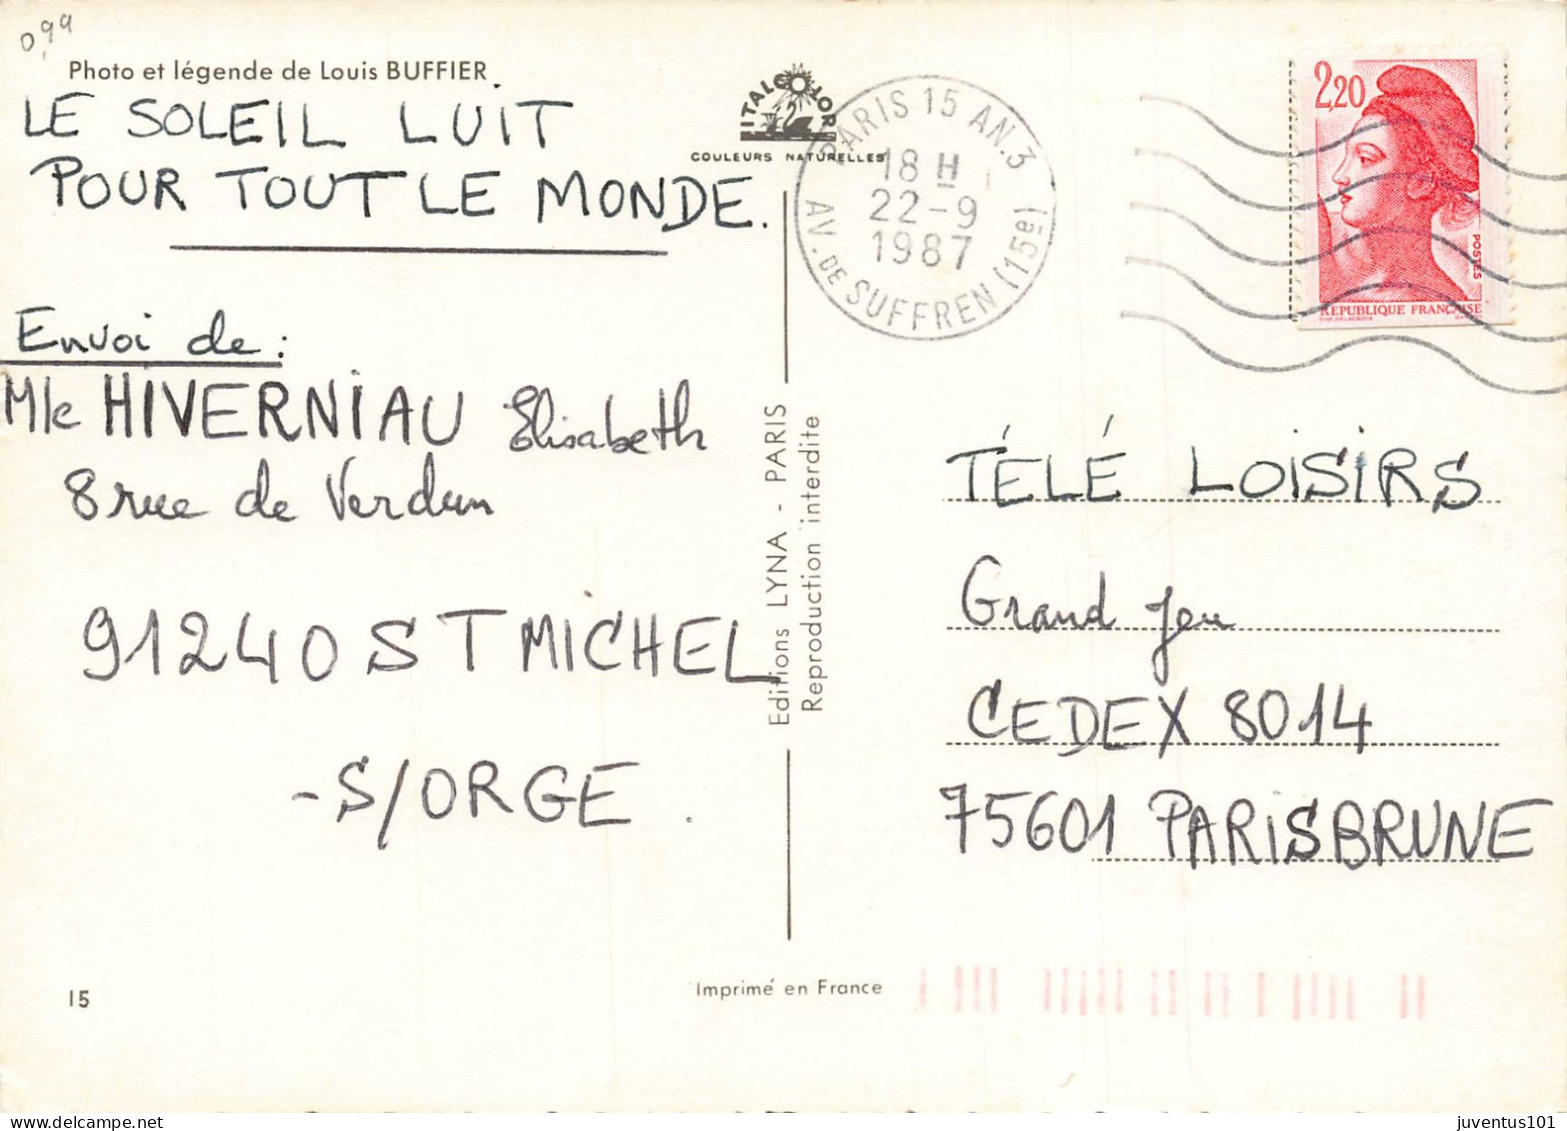 0,99
Photo et légende de Louis BUFFIER
LE SOLEIL LUIT
POUR TOUT LE MONDE.
Envoi de :
Mle HIVERNIAU Elisabeth
8 rue de Verdun
91240 ST MICHEL
- S/ORGE.
15
ITALCOLOR
COULEURS NATURELLES
Editions LYNA - PARIS
Reproduction interdite
Imprimé en France
PARIS 15 AN.3
18 H
22-9
1987
AV. DE SUFFREN (15e)
2,20
POSTES
REPUBLIQUE FRANÇAISE
TÉLÉ LOISIRS
Grand Jeu
CEDEX 8014
75601 PARISBRUNE
juventus101